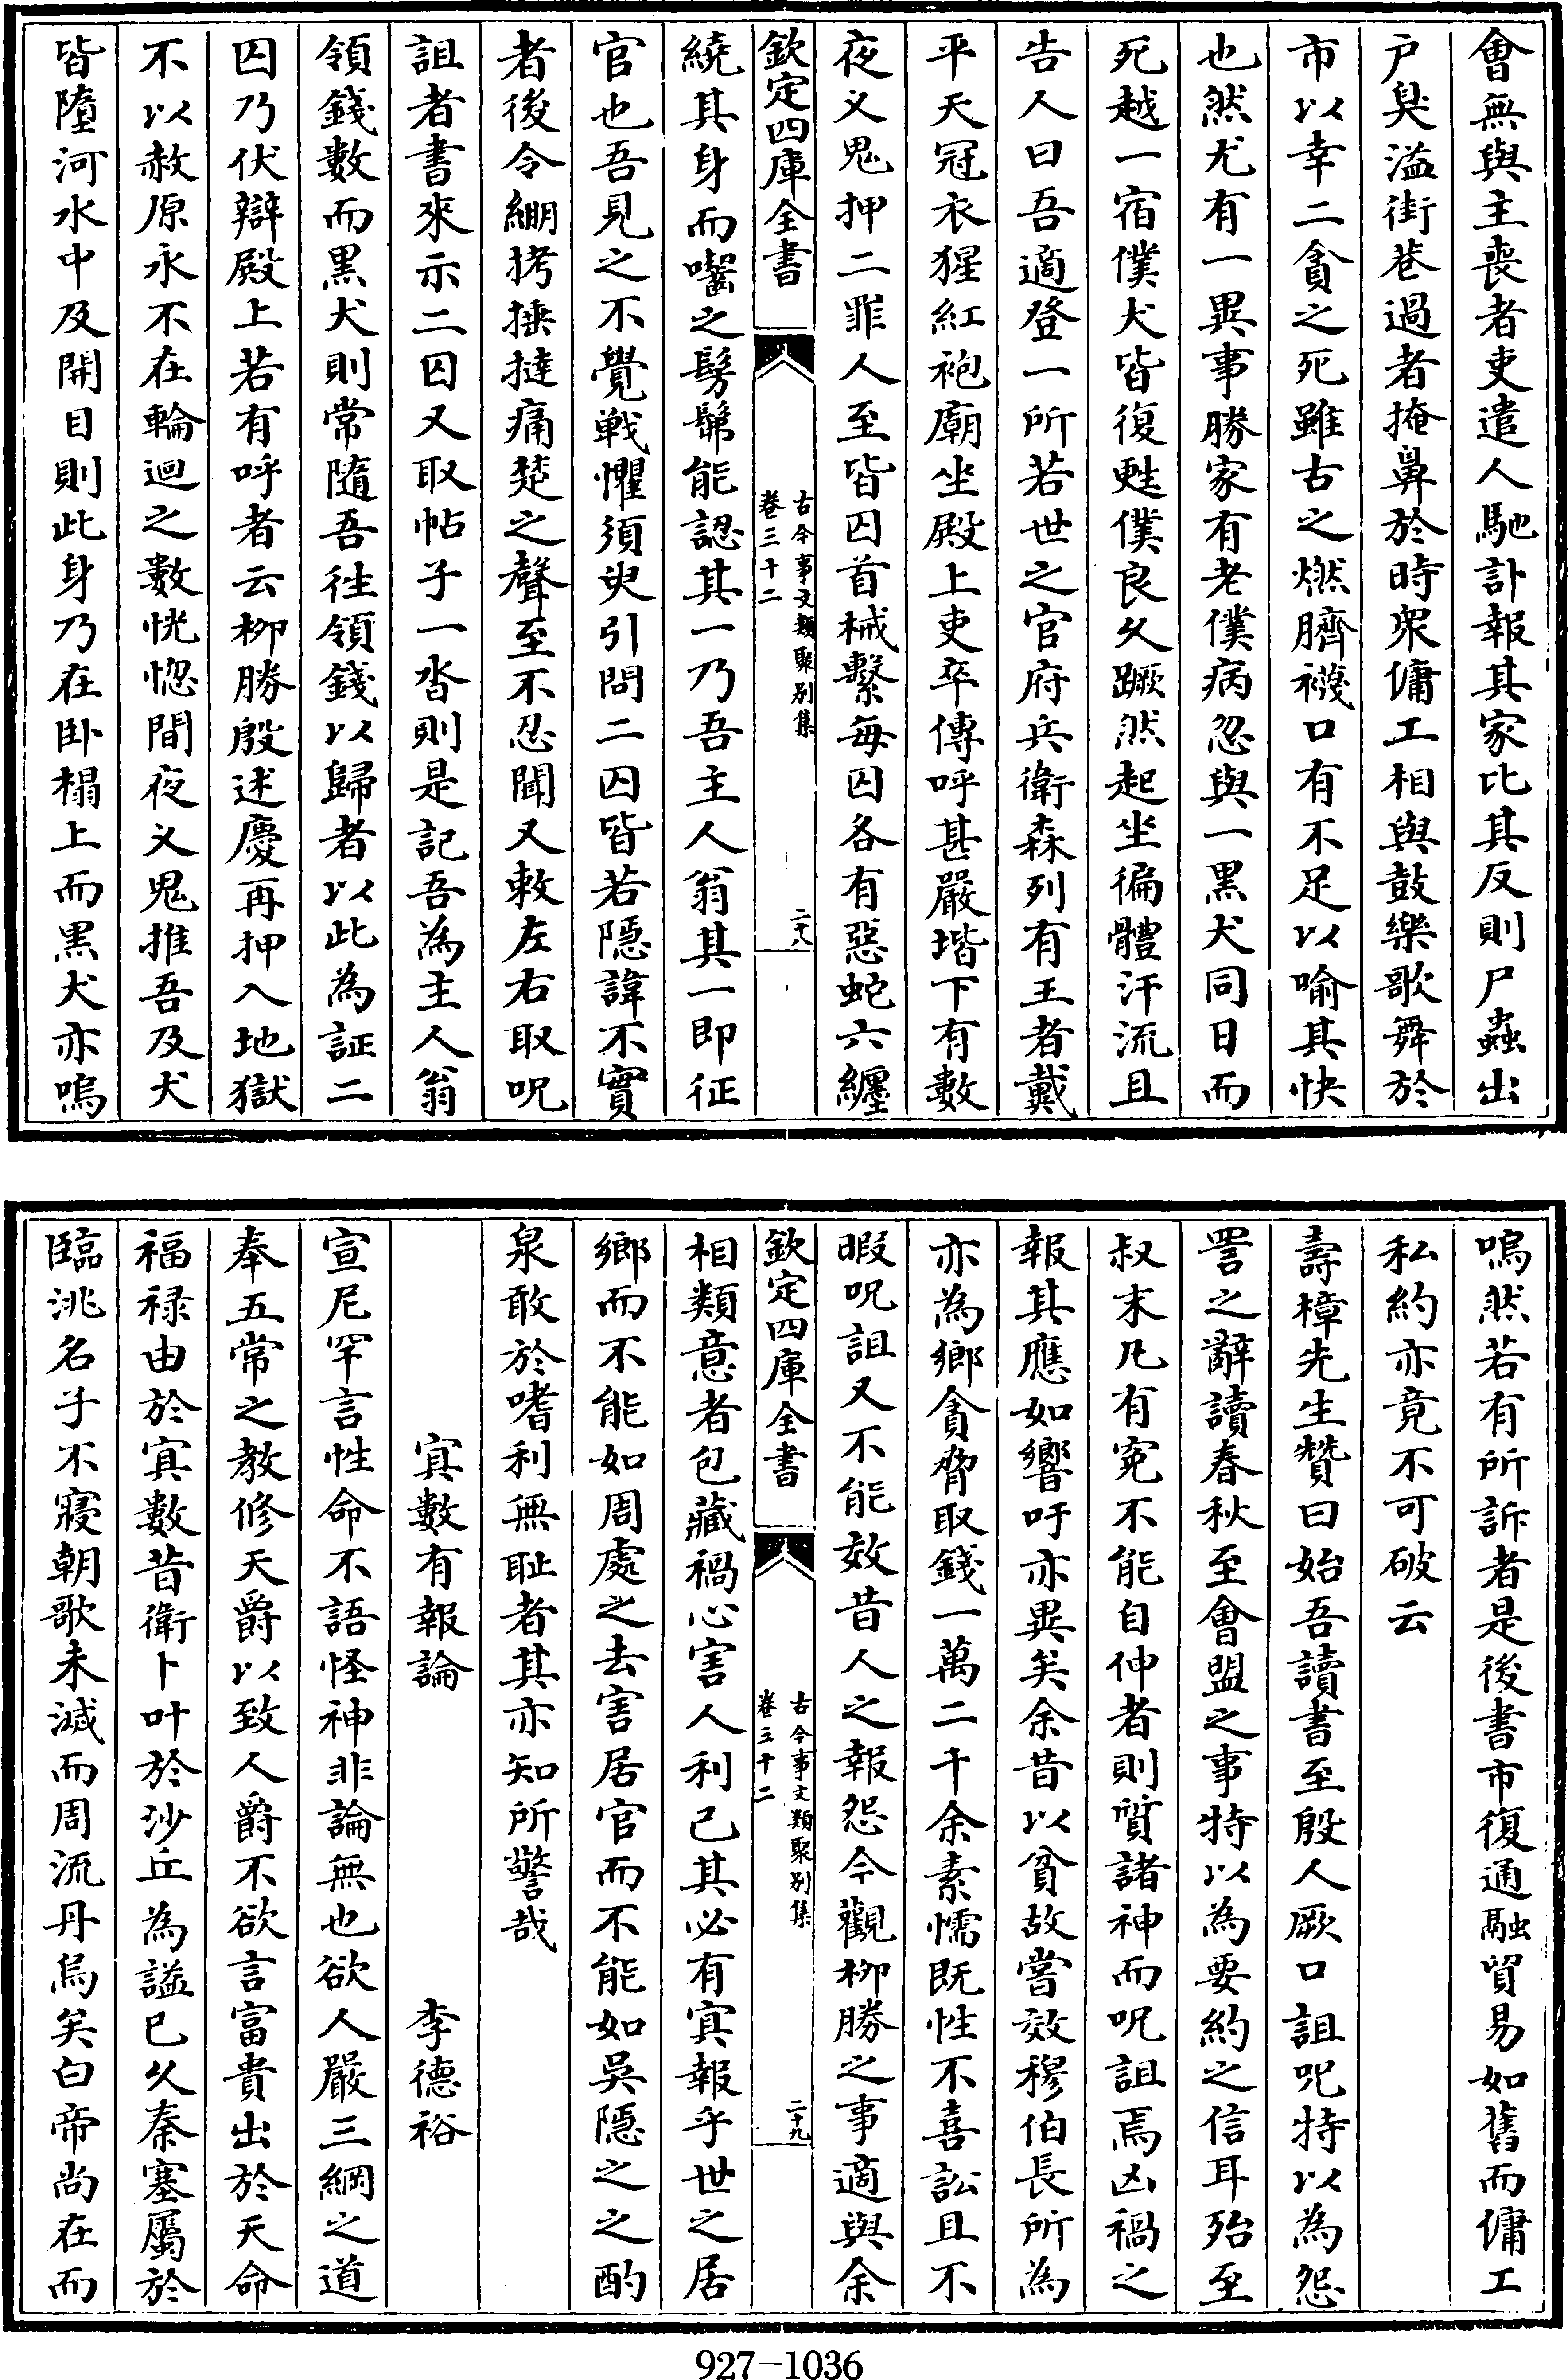 會無與主喪者吏遣人馳訃報其家比其反則尸蟲出
户臭溢街巷過者掩鼻於時衆傭工相與鼓樂歌舞於
市以幸二貪之死雖古之燃臍襪口有不足以喻其快
也然尤有一異事勝家有老僕病忽與一黑犬同日而
死越一宿僕犬皆復甦僕良久蹶然起坐徧體汗流且
告人曰吾適登一所若世之官府兵衛森列有王者戴
平天冠衣猩紅袍廟坐殿上吏卒傳呼甚嚴堦下有數
夜义鬼押二罪人至皆囚首械繫每囚各有惡蛇六纏
欽定四庫全書
古今事文類聚别集
卷三十二
二十八
繞其身而囓之髣髴能認其一乃吾主人翁其一即征
官也吾見之不覺戰懼須臾引問二囚皆若隠諱不實
者後令綳拷捶撻痛楚之聲至不忍聞又敕左右取呪
詛者書來示二囚又取帖子一沓則是記吾為主人翁
領錢數而黑犬則常隨吾徃領錢以歸者以此為証二
囚乃伏辯殿上若有呼者云柳勝殷述慶再押入地獄
不以赦原永不在輪迴之數恍惚間夜义鬼推吾及犬
皆墮河水中及開目則此身乃在卧榻上而黑犬亦嗚
嗚然若有所訴者是後書市復通融貿易如舊而傭工
私約亦竟不可破云
壽樟先生贊曰始吾讀書至殷人厥口詛呪特以為怨
詈之辭讀春秋至會盟之事特以為要約之信耳殆至
叔末凡有寃不能自伸者則質諸神而呪詛焉凶禍之
報其應如響吁亦異矣余昔以貧故嘗效穆伯長所為
亦為鄉貪脅取錢一萬二千余素懦既性不喜訟且不
暇呪詛又不能效昔人之報怨今觀柳勝之事適與余
欽定四庫全書
古今事文類聚别集
卷三十二
二十九
相類意者包藏禍心害人利己其必有㝠報乎世之居
鄉而不能如周處之去害居官而不能如吳隠之之酌
泉敢於嗜利無耻者其亦知所警哉
㝠數有報論 李德裕
宣尼罕言性命不語怪神非論無也欲人嚴三綱之道
奉五常之教修天爵以致人爵不欲言富貴出於天命
福禄由於㝠數昔衛卜叶於沙丘為諡已久秦塞屬於
臨洮名子不寢朝歌未滅而周流丹烏矣白帝尚在而
927-1036